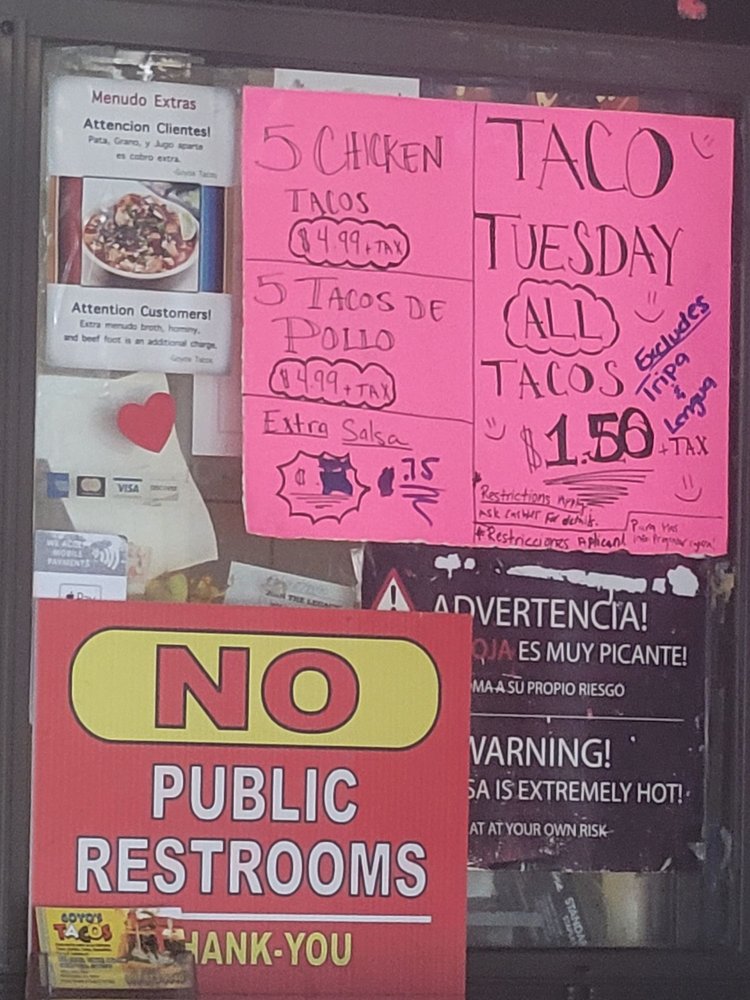 Menudo Extras
Attencion Clientes!
Pata, Grano, y Jugo aparte
es cobro extra.
-Goyos Tacos
Attention Customers!
Extra menudo broth, hominy,
and beef foot is an additional charge.
-Goyos Tacos
5 CHICKEN
TACOS
$4.99 + TAX
5 TACOS DE
POLLO
$4.99 + TAX
Extra Salsa
.75
TACO
TUESDAY
ALL
TACOS
Excludes
Tripa
&
Lengua
$1.50 + TAX
Restrictions Apply
ASK cashier For details.
*Restricciones Aplican!
Para mas
VISA
DISCOVER
WE ACCEPT
MOBILE
PAYMENTS
Pay
JOIN THE LEGACY
ADVERTENCIA!
OJA ES MUY PICANTE!
MA A SU PROPIO RIESGO
WARNING!
SA IS EXTREMELY HOT!
AT AT YOUR OWN RISK
NO
PUBLIC
RESTROOMS
HANK-YOU
GOYO'S
TACOS